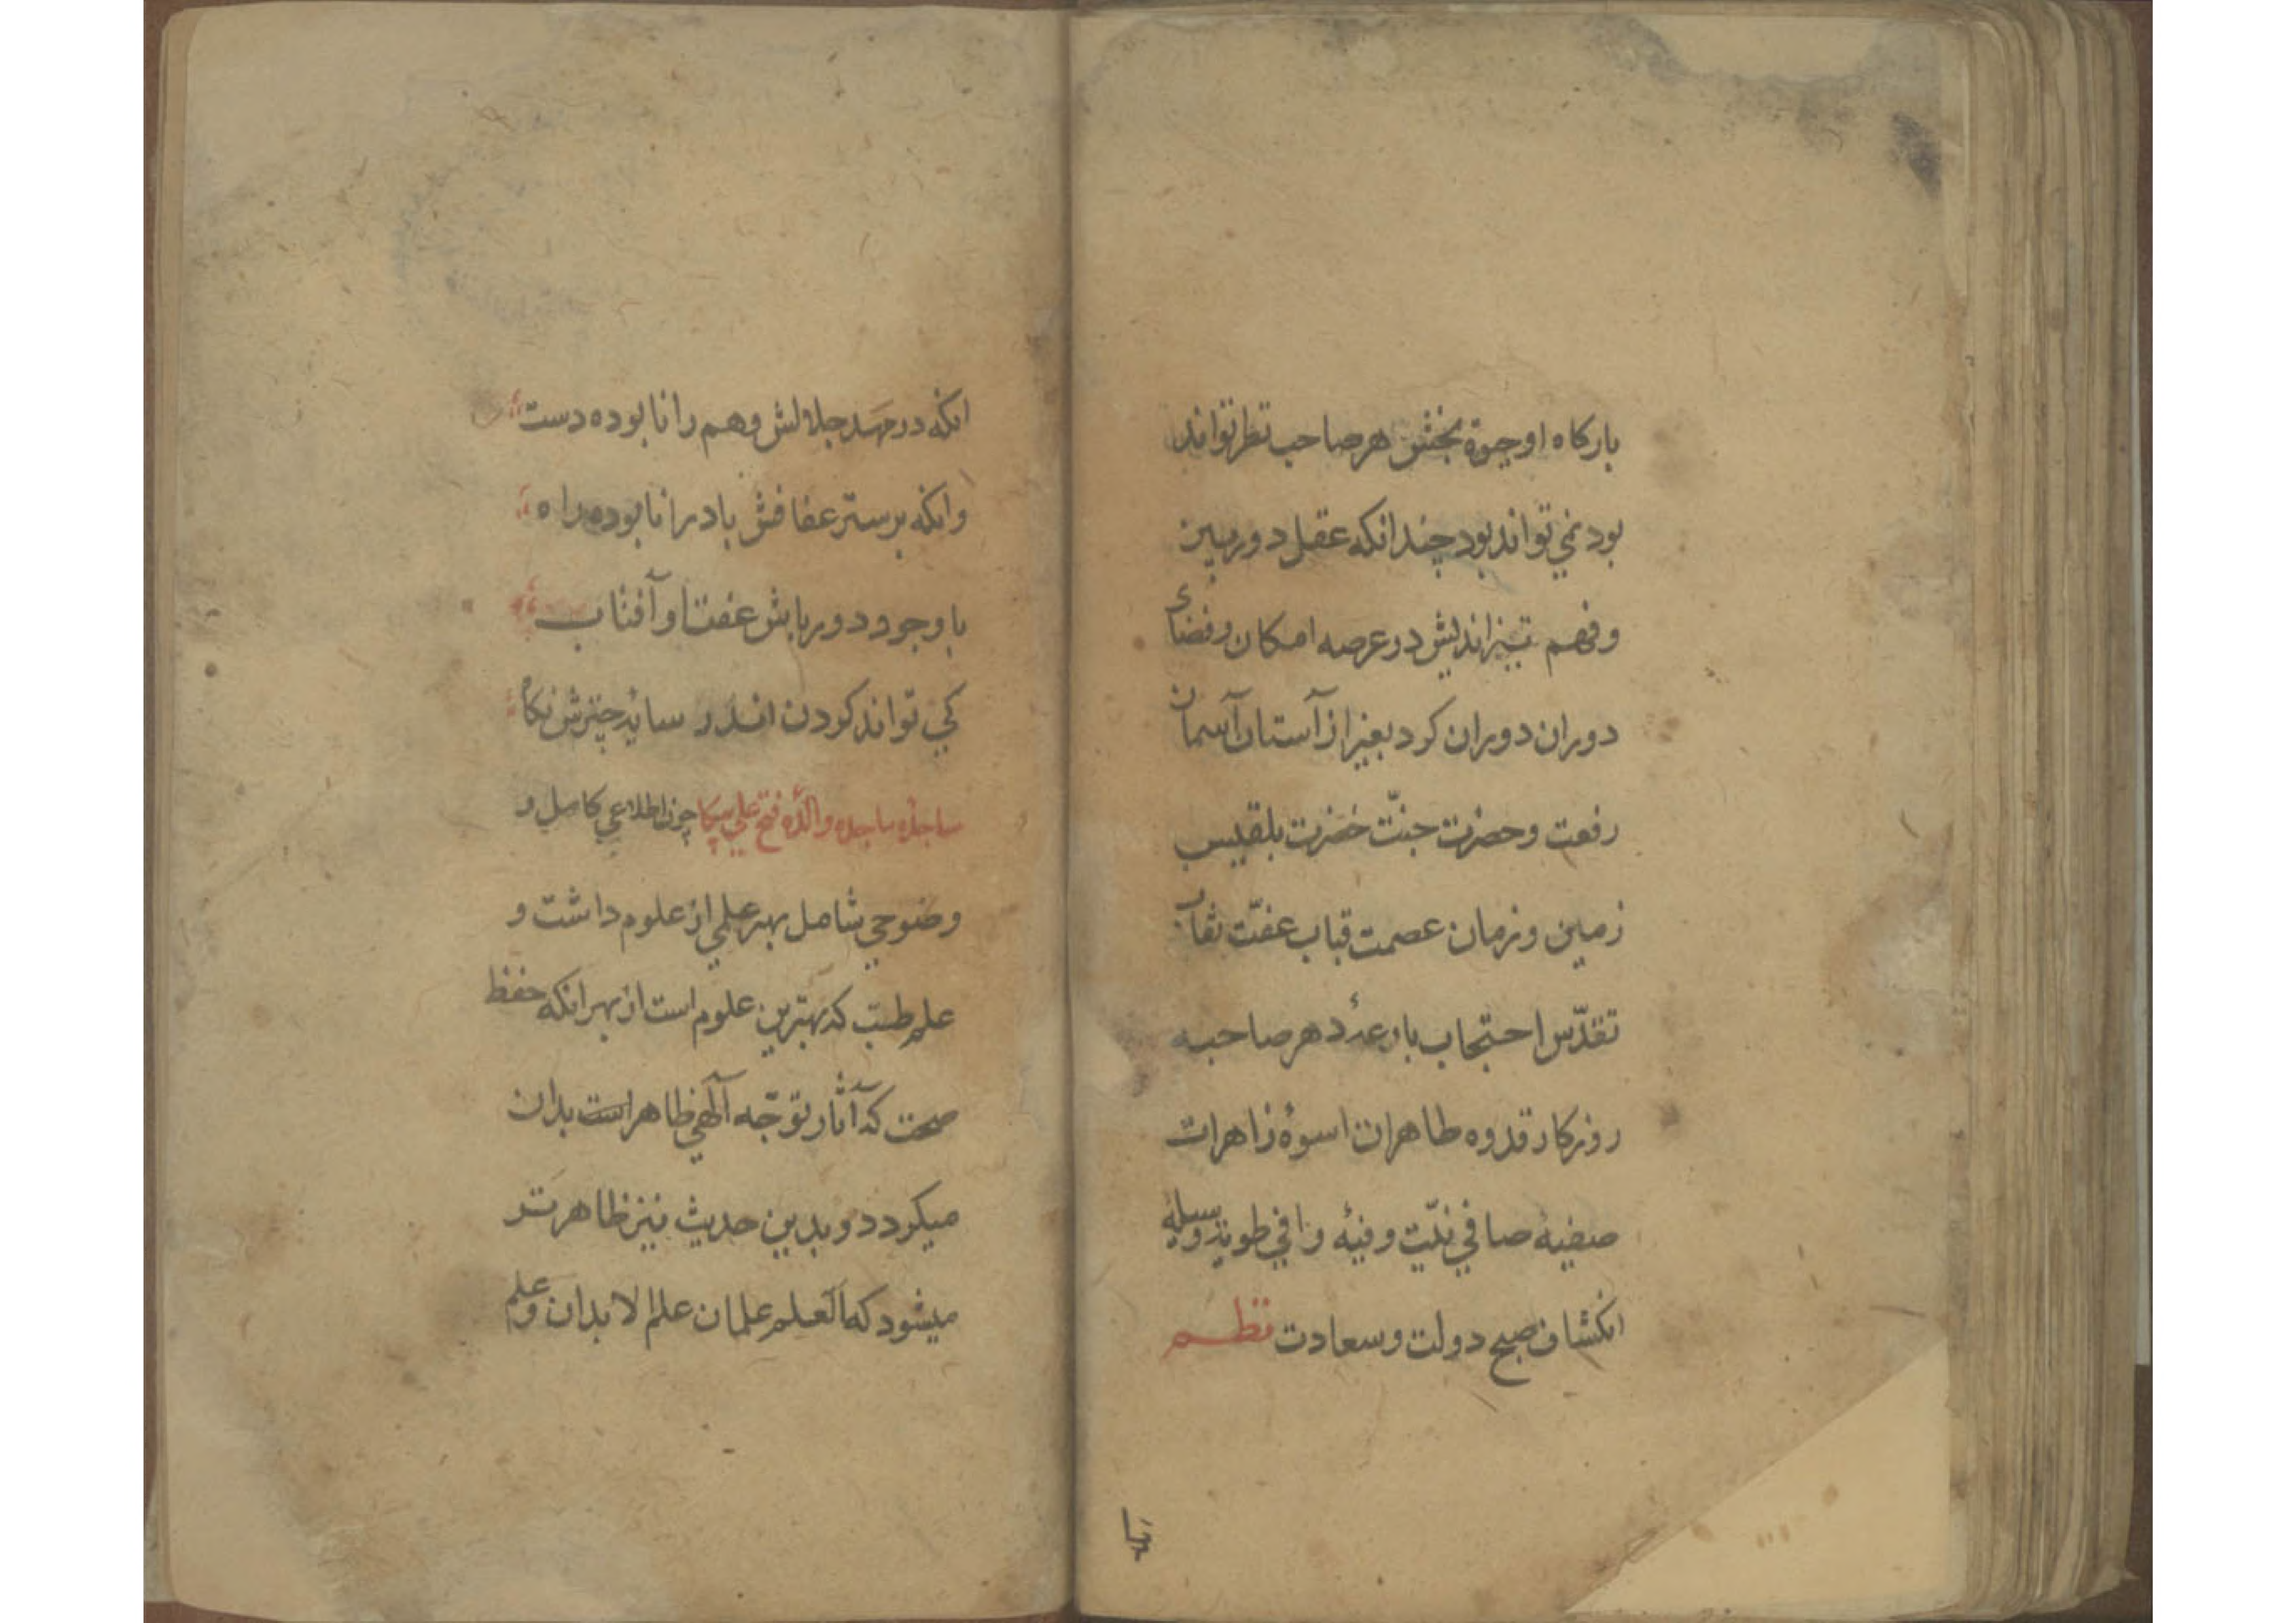 بارکاه او جیوة بخش هر صاحب نظر تواند
بود نمي تواند بود چندانکه عقل دوربین
و فهم تیز اندیش در عرصه امکان و فضای
دوران دوران کرد بغیر از آستان آسمان
رفعت و حضرت جنّت خضرت بلقیس
زمین و زمان عصمت قباب عفّت نقاب
تقدّس احتجاب بارعهٔ دهر صاحبه
روزکار قدوه طاهرات اسوهٔ زاهرات
صفیهٔ صافي نیّت وفیهٔ وافي طویة وسیلهٔ
انکشاف صبح دولت و سعادت نظم
انکه در مهد جلالش وهم را نابوده دست
وانکه بر ستر عفافش باد را نابوده راه
با وجود دورباش عفت او آفتاب
کي تواند کردن اندر سایهٔ چترش نکاه
ساجدهٔ ساجده والدهٔ فتح علي میرکا چون اطلاعي کامل و
وضوحي شامل بهر علمي از علوم داشت و
علم طبّ که بهترین علوم است از بهر انکه حفظ
صحت که آثار توجّه آلهي ظاهر است بدان
میکردد و بدین حدیث نیز ظاهر تر
میشود که العلم علمان علم الابدان و علم